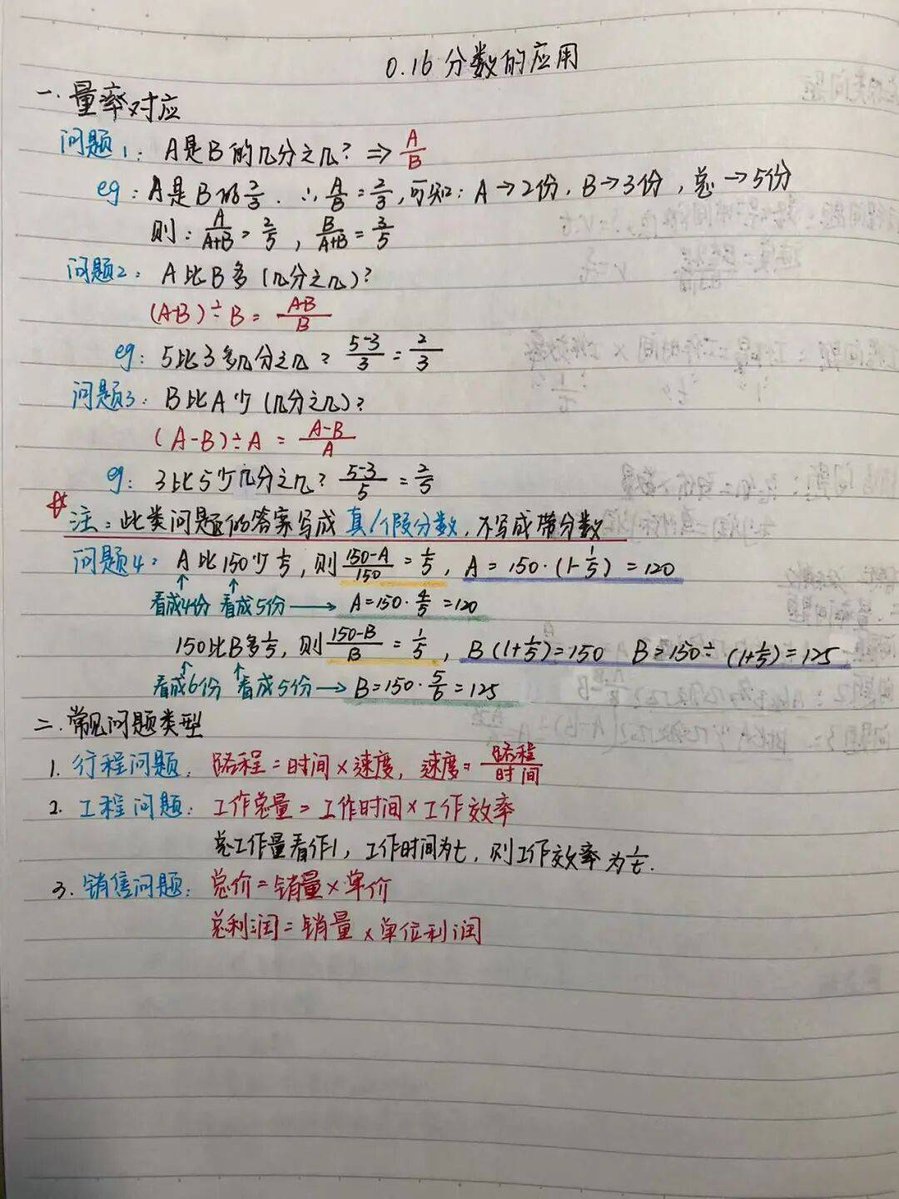 0.16 分数的应用
一. 量率对应
问题1: A是B的几分之几? ⇒ A/B
eg: A是B的2/3. ∴ A/B = 2/3, 可知: A → 2份, B → 3份, 总 → 5份
则: A/(A+B) = 2/5, B/(A+B) = 3/5
问题2: A比B多(几分之几)?
(A-B)÷B = (A-B)/B
eg: 5比3多几分之几? (5-3)/3 = 2/3
问题3: B比A少(几分之几)?
(A-B)÷A = (A-B)/A
eg: 3比5少几分之几? (5-3)/5 = 2/5
注: 此类问题的答案写成 真/假分数, 不写成带分数
问题4: A比150少1/5, 则 (150-A)/150 = 1/5, A = 150·(1-1/5) = 120
看成4份 看成5份 → A=150·4/5=120
150比B多1/5, 则 (150-B)/B = 1/5, B(1+1/5)=150 B=150÷(1+1/5)=125
看成6份 看成5份 → B=150·5/6=125
二. 常见问题类型
1. 行程问题: 路程=时间×速度, 速度=路程/时间
2. 工程问题: 工作总量=工作时间×工作效率
总工作量看作1, 工作时间为t, 则工作效率为1/t.
3. 销售问题: 总价=销量×单价
总利润=销量×单位利润